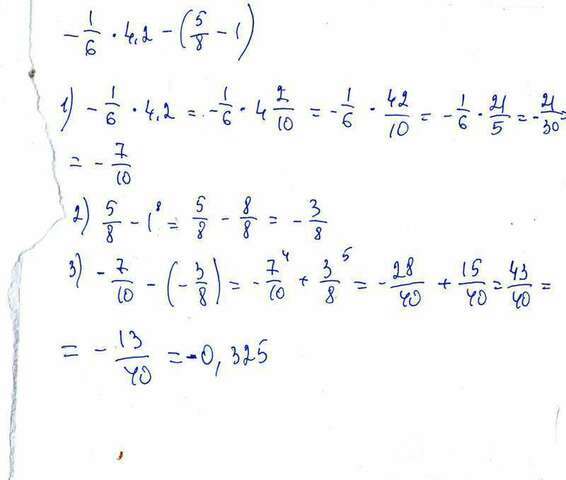 -1/6 · 4,2 - (5/8 - 1)
1) -1/6 · 4,2 = -1/6 · 4 2/10 = -1/6 · 42/10 = -1/6 · 21/5 = -21/30 =
= -7/10
2) 5/8 - 1⁸ = 5/8 - 8/8 = -3/8
3) -7/10 - (-3/8) = -7/10⁴ + 3/8⁵ = -28/40 + 15/40 = 43/40 =
= -13/40 = -0,325